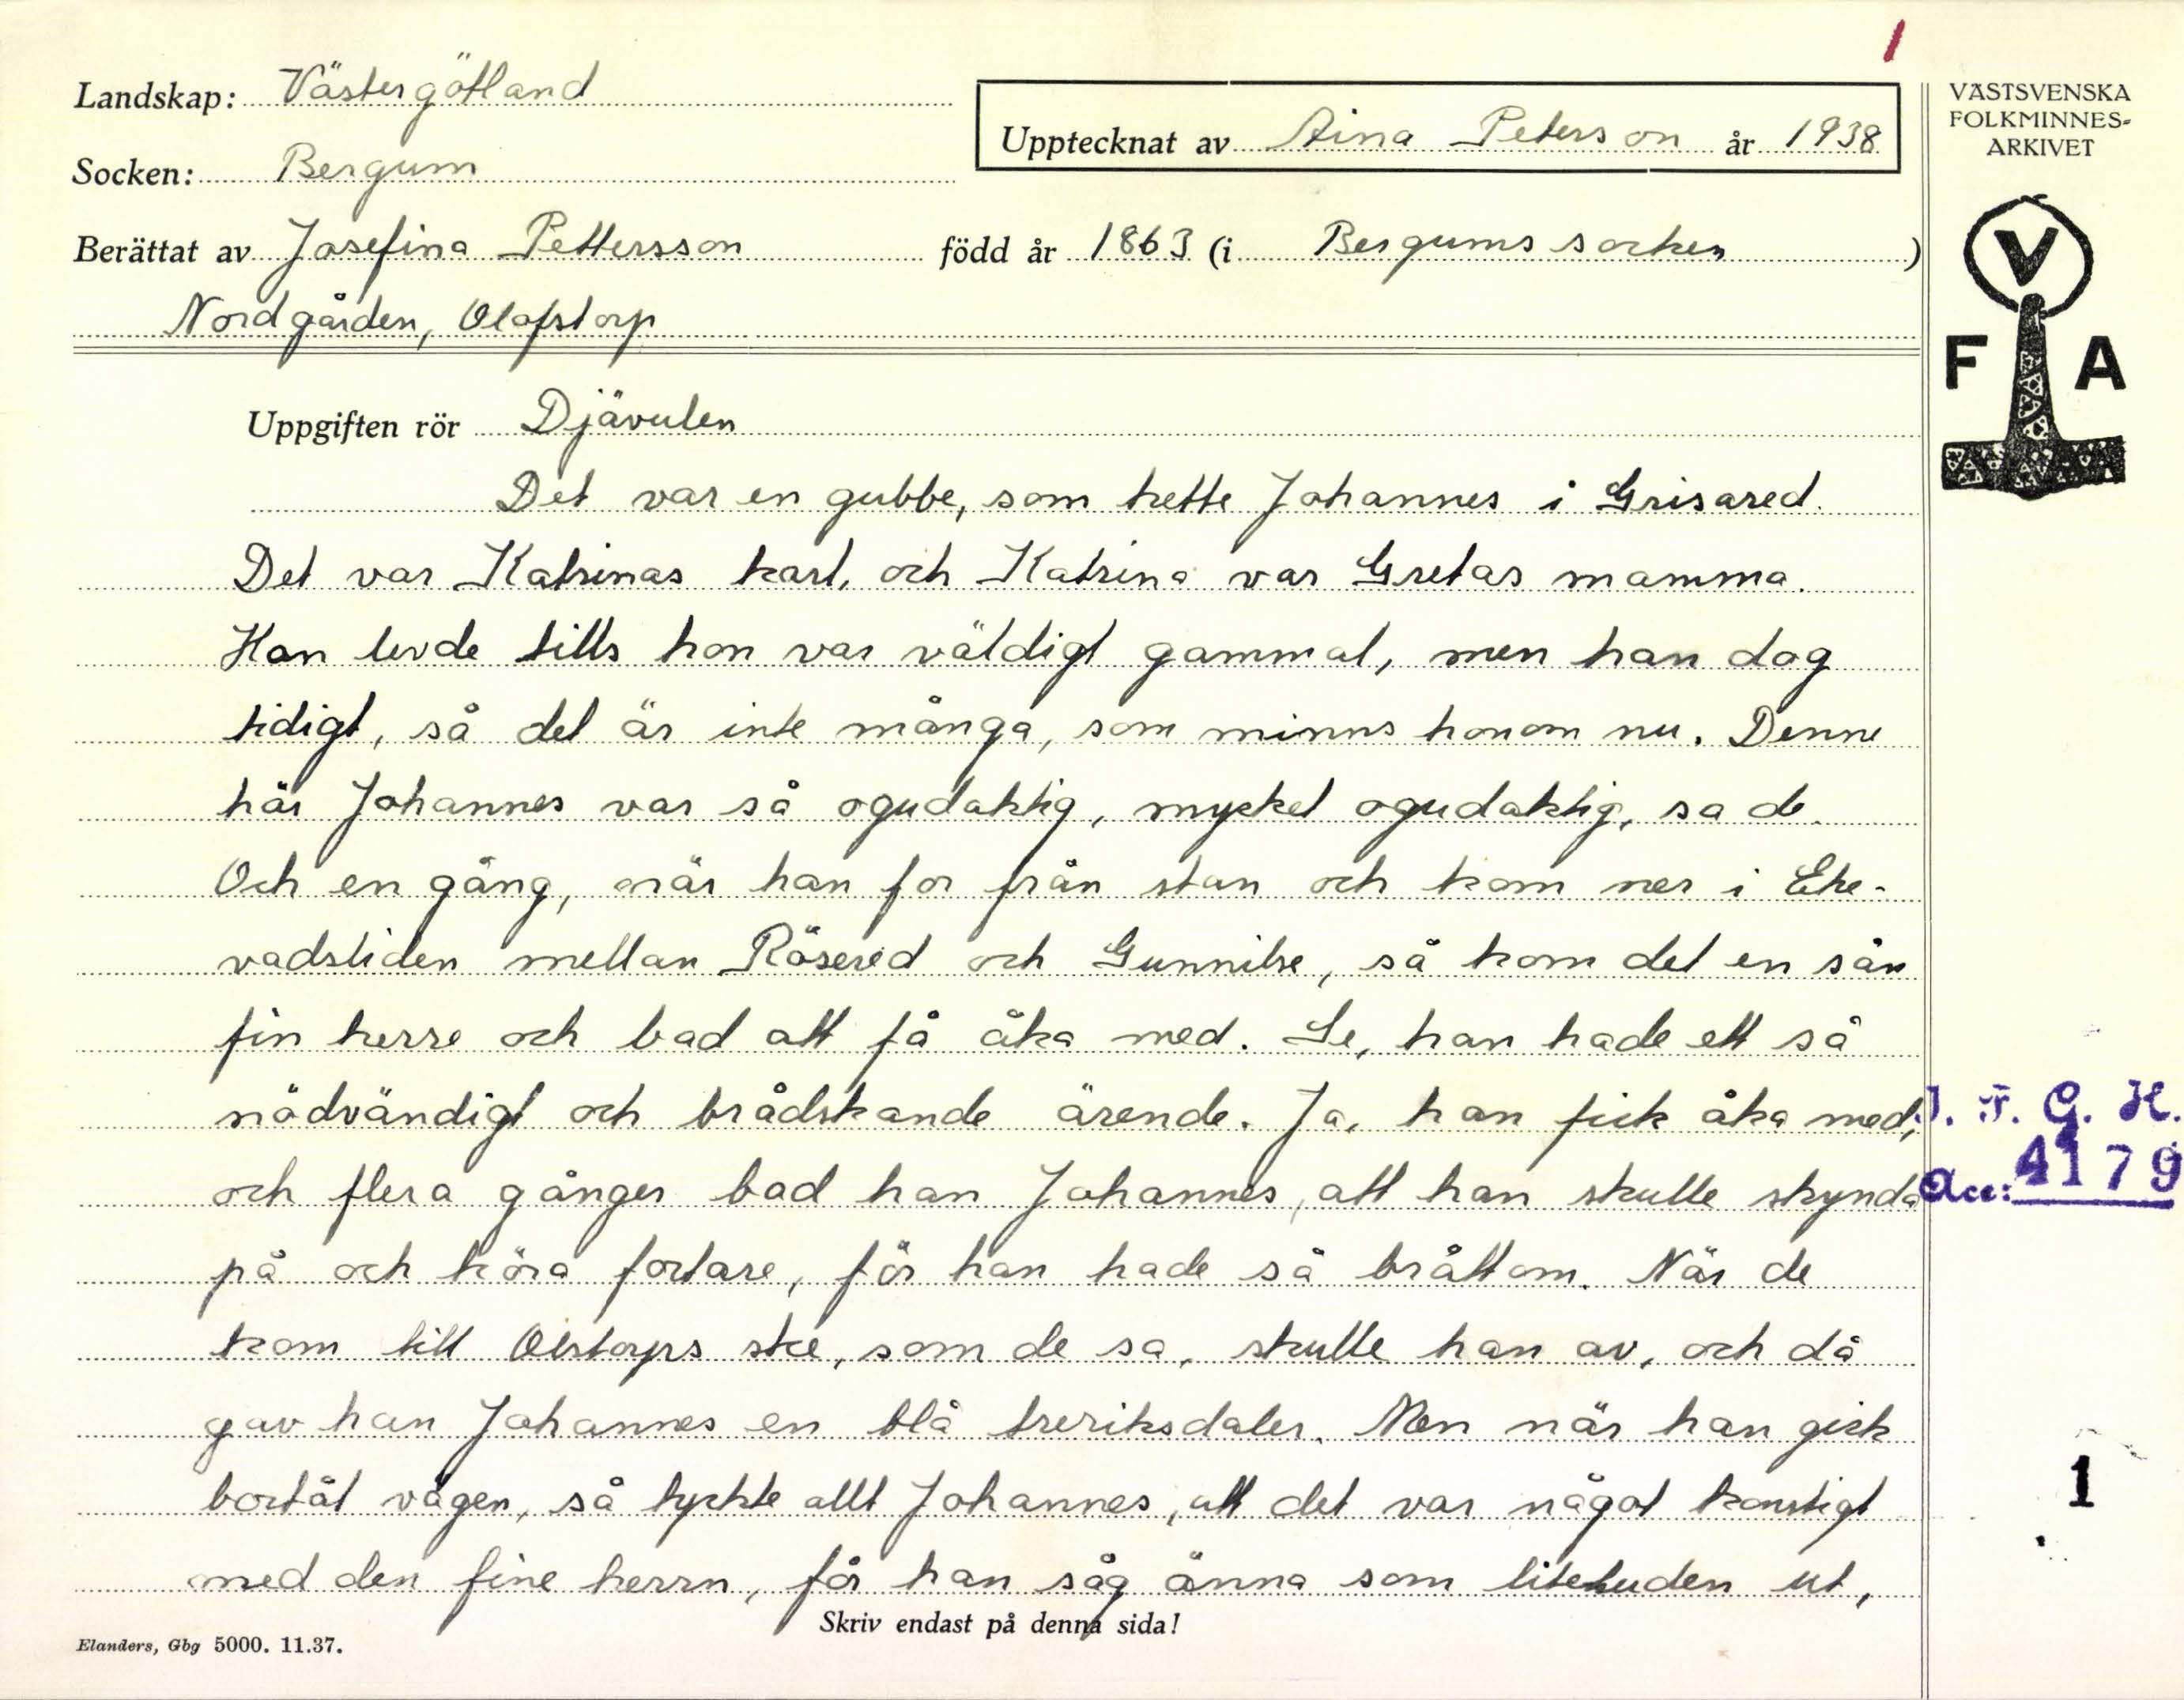 1
Landskap: Västergötland
Upptecknat av Aina Peterson år 1938
VÄSTSVENSKA
FOLKMINNES-
ARKIVET
Socken: Bergum
Berättat av Josefina Pettersson född år 1863 (i Bergums socken )
Nordgården, Olofstorp
V
F A
Uppgiften rör Djävulen
Det var en gubbe, som hette Johannes i Grisared.
Det var Katrinas karl, och Katrina var Gretas mamma.
Hon levde tills hon var väldigt gammal, men han dog
tidigt, så det är inte många, som minns honom nu. Denne
här Johannes var så ogudaktig, mycket ogudaktig, sa de.
Och en gång, när han for från stan och kom ner i Eke-
vadsliden mellan Rösered och Gunnilse, så kom det en sån
fin herre och bad att få åka med. Se, han hade ett så
nödvändigt och brådskande ärende. Ja, han fick åka med,
I. F. G. H.
och flera gånger bad han Johannes, att han skulle skynda
Acc: 4179
på och köra fortare, för han hade så bråttom. När de
kom till Olstorps ske, som de sa, skulle han av, och då
gav han Johannes en blå treriksdaler. Men när han gick
bortåt vägen, så tyckte allt Johannes, att det var något konstigt
1
med den fine herrn, för han såg änna som liteluden ut,
Skriv endast på denna sida!
Elanders, Gbg 5000. 11.37.